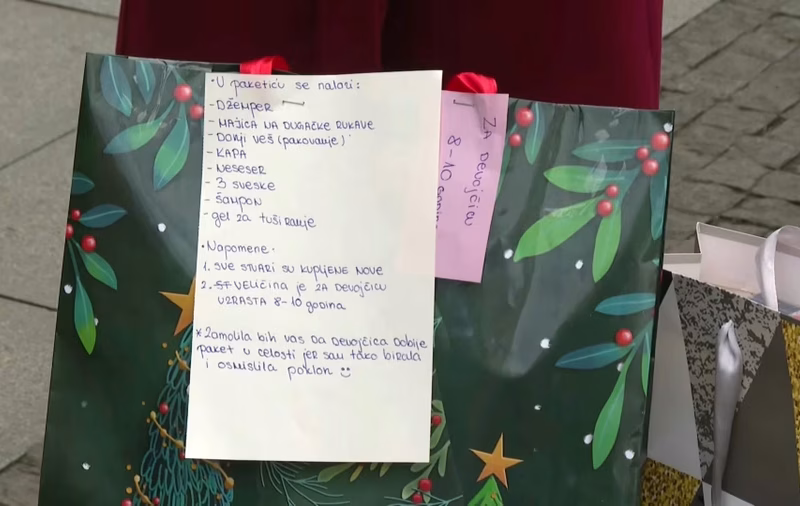 • U paketiću se nalazi:
- DŽEMPER
- MAJICA NA DUGAČKE RUKAVE
- DONJI VEŠ (pakovanje)
- KAPA
- NESESER
- 3 SVESKE
- ŠAMPON
- gel za tuširanje
• Napomene •
1. SVE STVARI SU KUPLJENE NOVE
2. VELIČINA je ZA DEVOJČICU
UZRASTA 8-10 godina
* Zamolila bih vas DA DEVOJČICA DOBIJE
paket u celosti jer sam tako birala
i osmislila poklon :)
ZA DEVOJČICU
8-10 godina